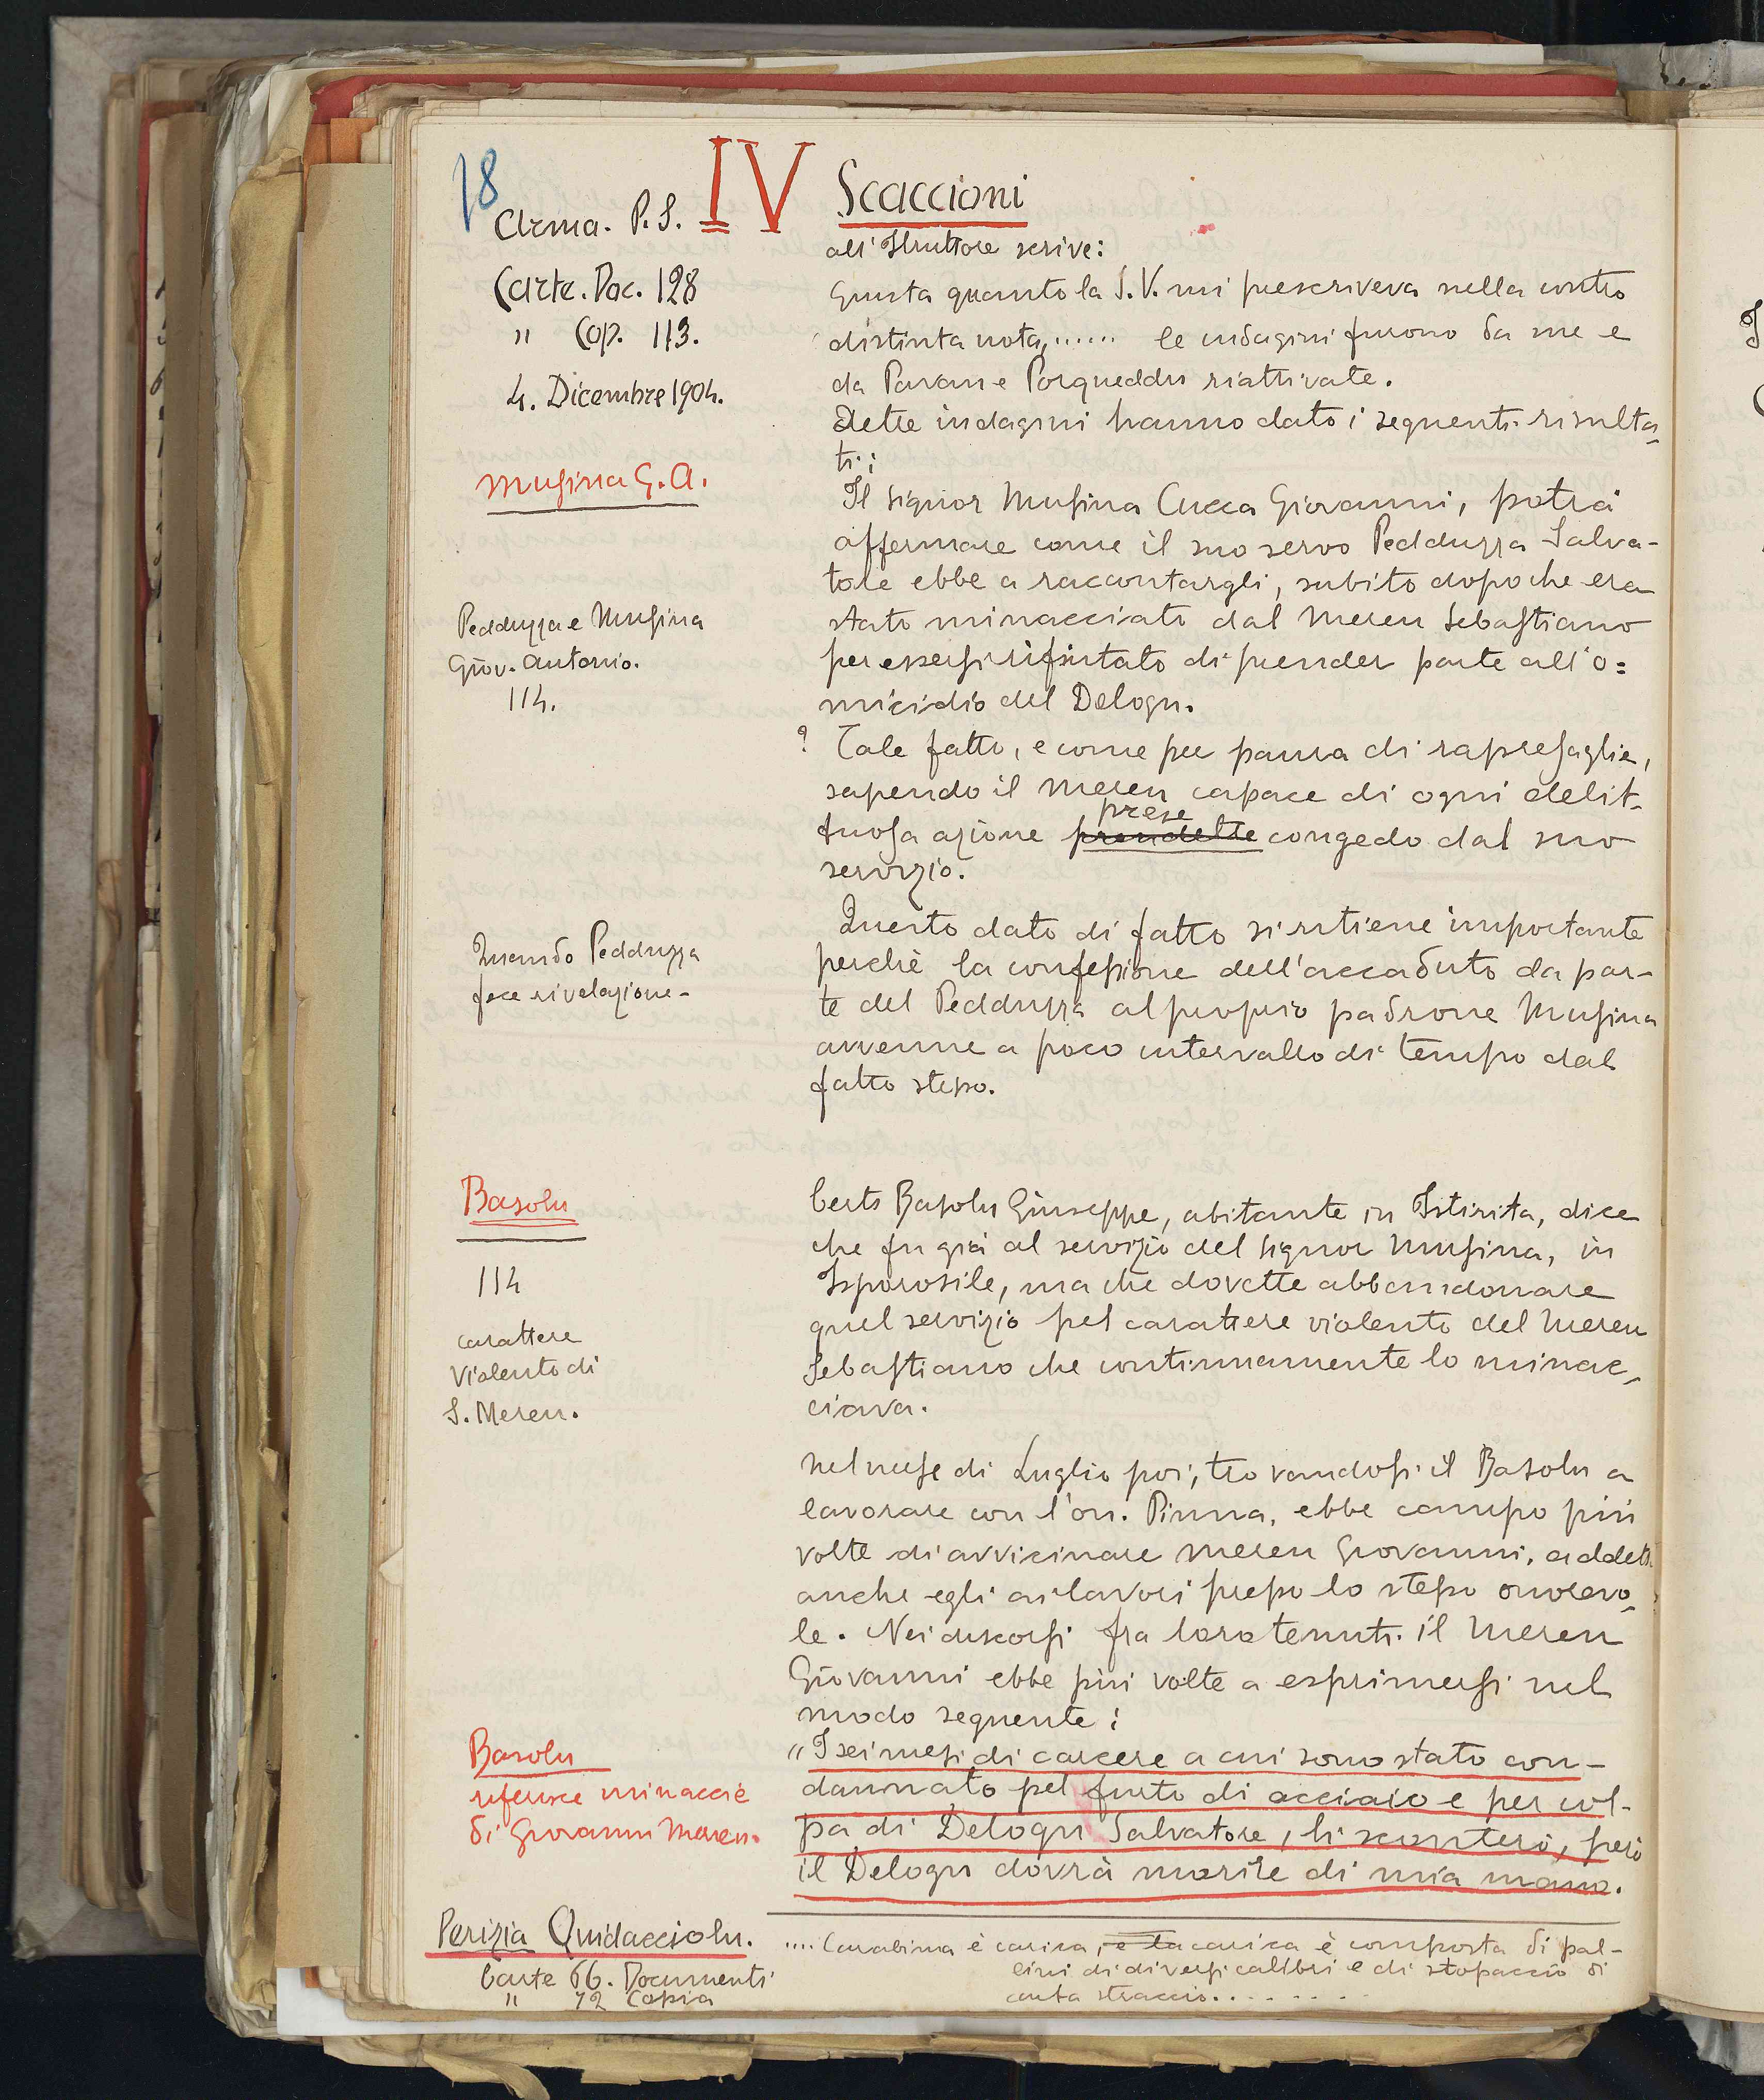 18
Arma. P. S.
IV
Scaccioni
all'Istruttore scrive:
Carte. Doc. 128
" Cop. 113.
4. Dicembre 1904.
Giusta quanto la S. V. mi prescriveva nella contro
distinta nota,...... le indagini furono da me e
da Pavan e Porqueddu riattivate.
Dette indagini hanno dato i seguenti risulta-
ti:
Musina G. A.
Il signor Musina Cucca Giovanni, potrà
affermare come il suo servo Pedduzza Salva-
tore ebbe a raccontargli, subito dopo che era
stato minacciato dal Mereu Sebastiano
per essersi rifiutato di prender parte all'o=
micidio del Delogu.
Pedduzza e Musina
Giov. Antonio.
114.
? Tale fatto, e come per paura di rapresaglie,
sapendo il Mereu capace di ogni delit-
tuosa azione prendette congedo dal suo
prese
servizio.
Quando Pedduzza
fece rivelazione-
Questo dato di fatto si ritiene importante
perchè la confessione dell'accaduto da par-
te del Pedduzza al proprio padrone Musina
avvenne a poco intervallo di tempo dal
fatto stesso.
Basolu
114
carattere
violento di
S. Mereu.
Certo Basolu Giuseppe, abitante in Istirita, dice
che fu già al servizio del signor Musina, in
Isporosile, ma che dovette abbandonare
quel servizio pel carattere violento del Mereu
Sebastiano che continuamente lo minac-
ciava.
nel mese di Luglio poi, trovandosi il Basolu a
lavorare con l'on. Pinna, ebbe campo più
volte di avvicinare Mereu Giovanni, addetto
anche egli ai lavori presso lo stesso onorevo-
le. Nei discorsi fra loro tenuti il Mereu
Giovanni ebbe più volte a esprimersi nel
modo seguente:
Basolu
riferisce minaccie
di Giovanni Mereu.
"I sei mesi di carcere a cui sono stato con-
dannato pel furto di acciaio e per col-
pa di Delogu Salvatore, li sconterò, però
il Delogu dovrà morire di mia mano.
Perizia Quidacciolu.
Carte 66. Documenti
" 72 Copia
.... Carabina è carica, e la carica è composta di pal-
lini di diversi calibri e di stopaccio di
carta straccio........